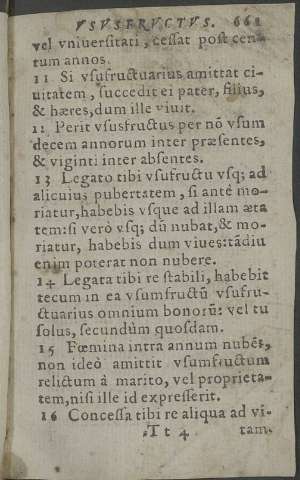 VSVSFRVCTVS. 661
vel vniuersitati, cessat post cen-
tum annos.
11 Si vsufructuarius amittat ci-
uitatem, succedit ei pater, filius,
& hæres, dum ille viuit.
12 Perit vsusfructus per nõ vsum
decem annorum inter præsentes,
& viginti inter absentes.
13 Legato tibi vsufructu vsq; ad
alicuius pubertatem, si antè mo-
riatur, habebis vsque ad illam æta
tem: si verò vsq; dũ nubat, & mo-
riatur, habebis dum viues: tãdiu
enim poterat non nubere.
14 Legata tibi re stabili, habebit
tecum in ea vsumfructũ vsufru-
ctuarius omnium bonorũ: vel tu
solus, secundùm quosdam.
15 Fœmina intra annum nubẽs,
non ideò amittit vsumfructum
relictum à marito, vel proprieta-
tem, nisi ille id expresserit.
16 Concessa tibi re aliqua ad vi-
Tt 4 tam.